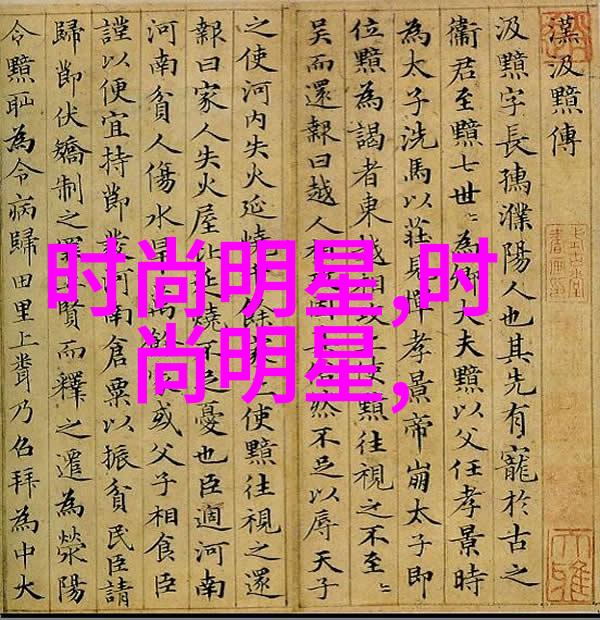 漢汲黯傳
汲黯字長孺濮陽人也其先有寵於古之
衞君至黯七世〻為卿大夫黯以父任孝景時
為太子洗馬以莊見憚孝景帝崩太子即
位黯為謁者東越相攻使黯往視之不至〻
吳而還報曰越人相然不足以辱天子
之使河內失火延燒餘使黯往視之還
報曰家人失火屋比延燒不足憂也臣適河南
河南貧人傷水旱萬餘或父子相食臣
謹以便宜持節發河南倉粟以振貧民臣請
歸節伏矯制之罪上賢而釋之遷為滎陽
令黯恥為令病歸田里上乃召拜為中大
时尚明星,时
尚明星,